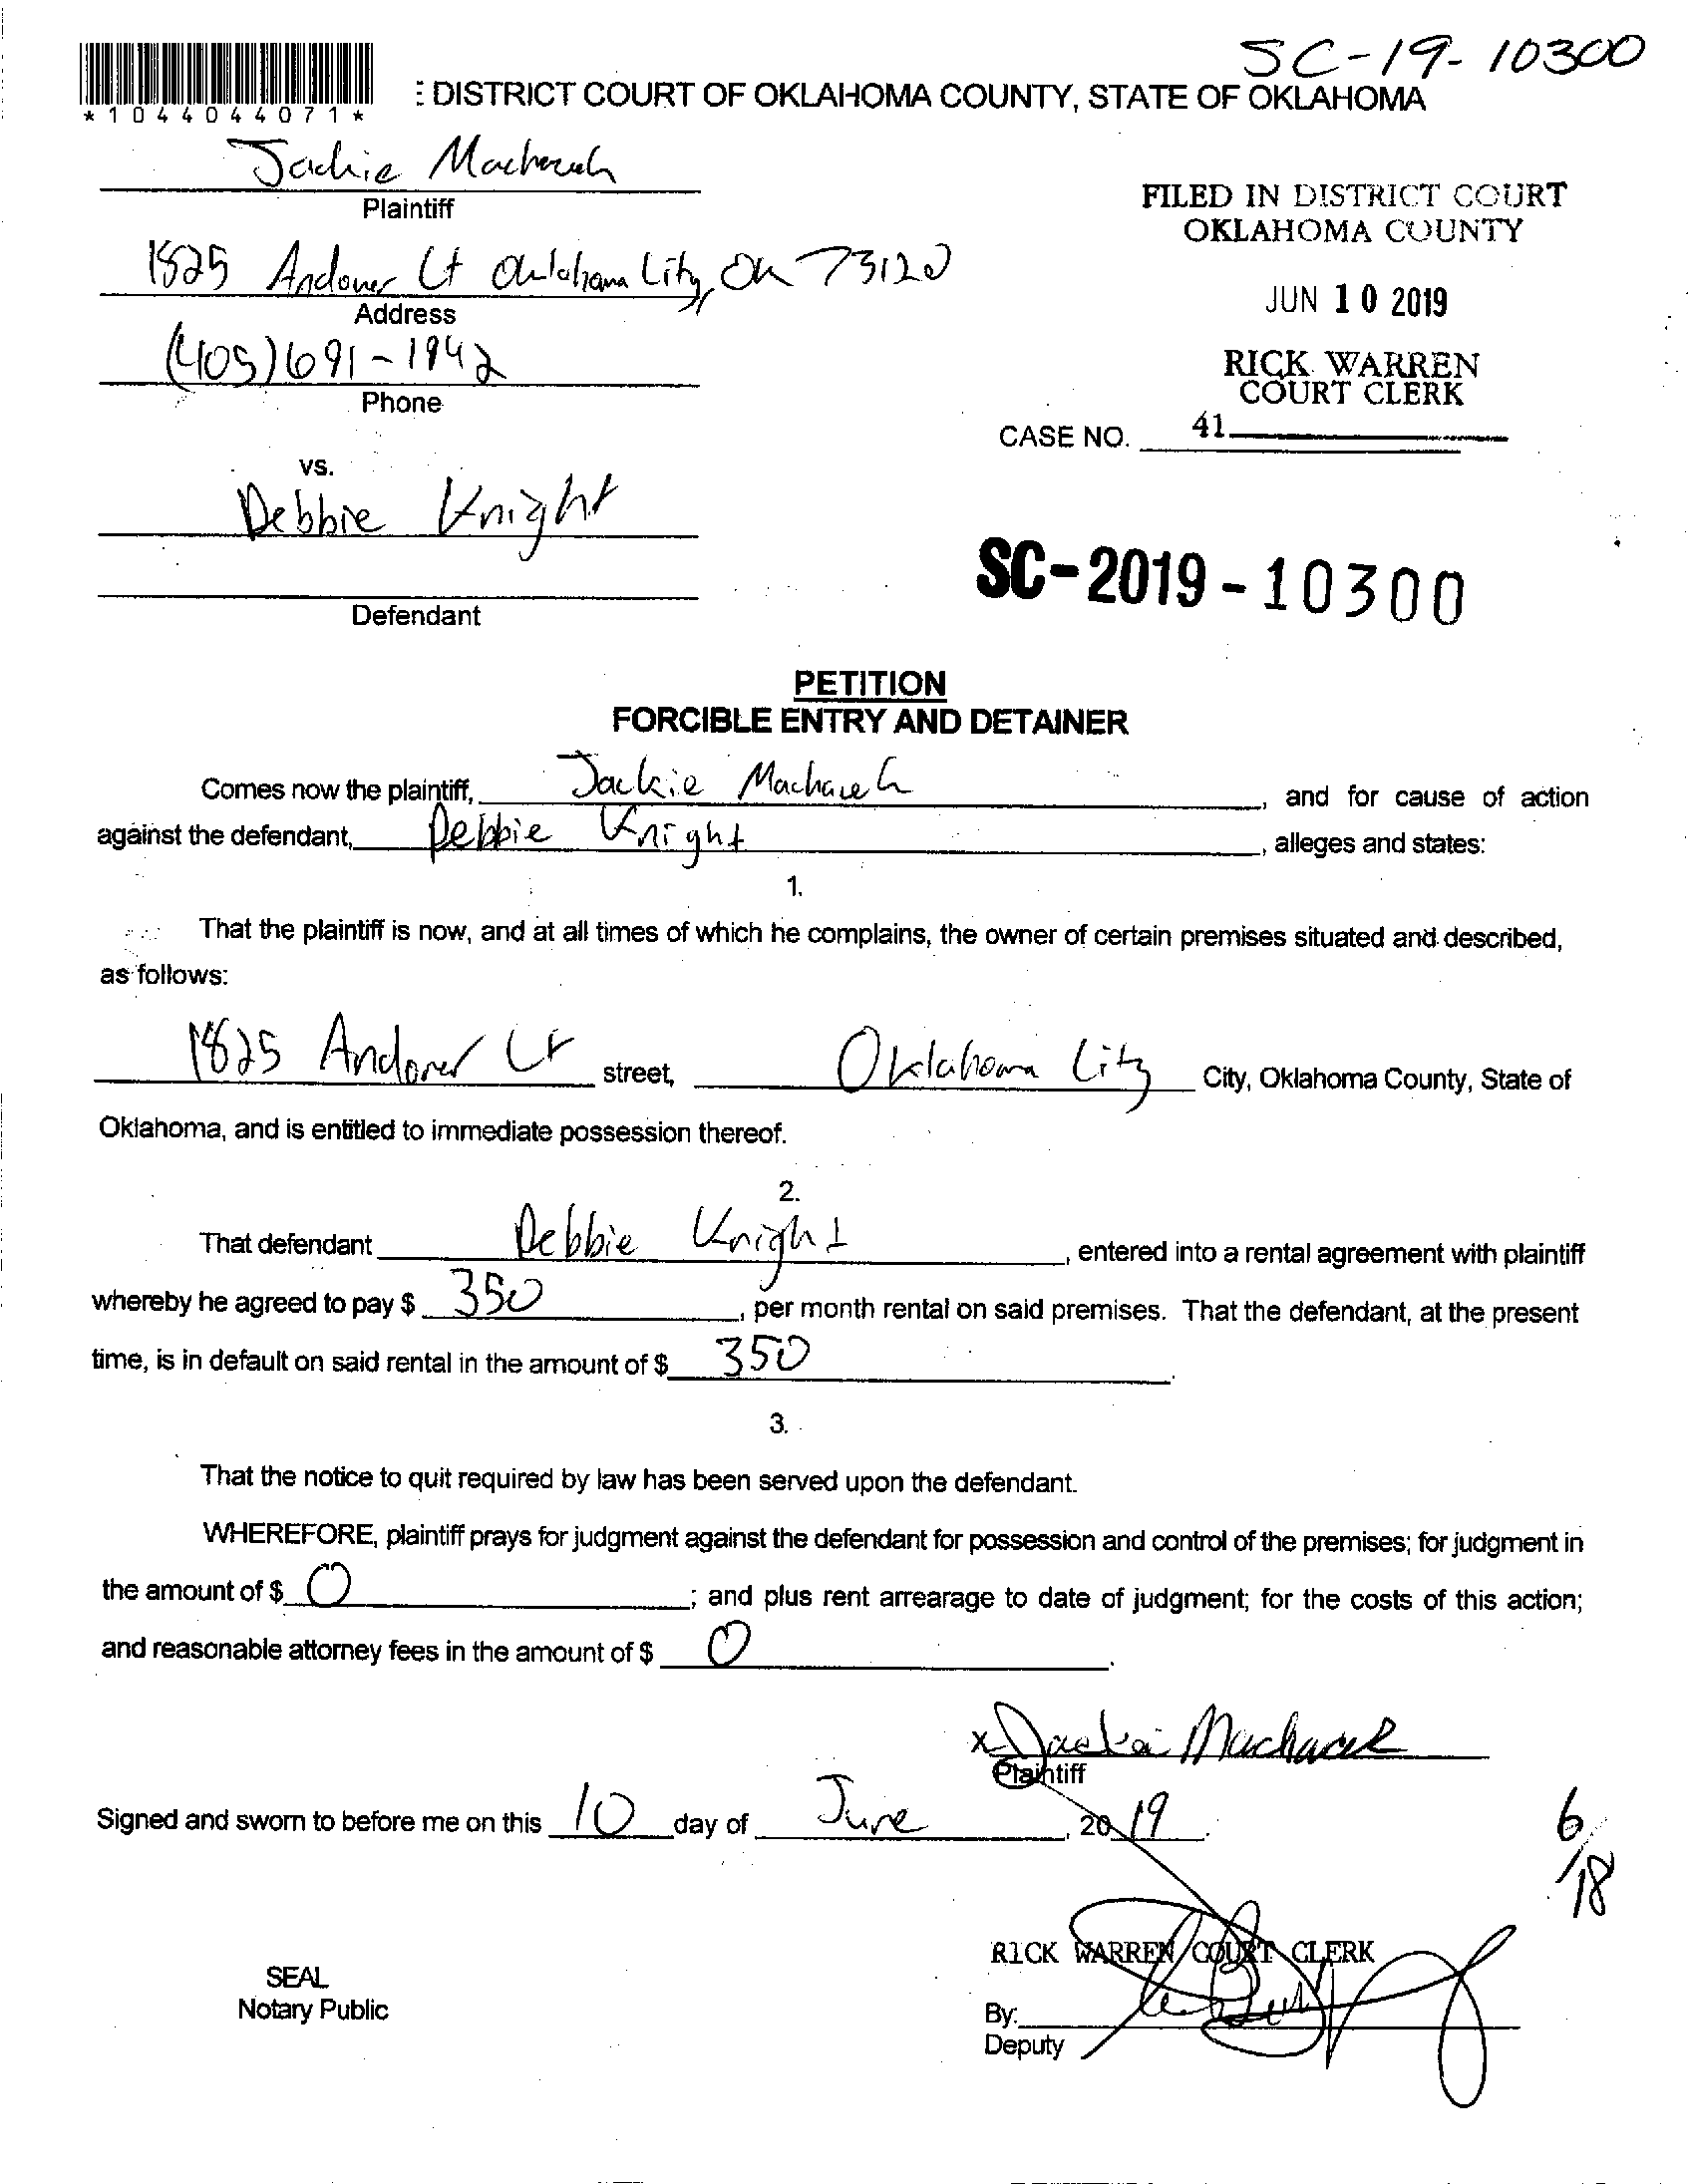 SC-19-10300
*1044044071*
E DISTRICT COURT OF OKLAHOMA COUNTY, STATE OF OKLAHOMA
Jackie Machacek
Plaintiff
FILED IN DISTRICT COURT
OKLAHOMA COUNTY
1825 Andover Ct Oklahoma City, OK 73120
Address
JUN 10 2019
(405)691-1942
Phone
RICK WARREN
COURT CLERK
CASE NO. 41
vs.
Debbie Knight
Defendant
SC-2019-10300
PETITION
FORCIBLE ENTRY AND DETAINER
Comes now the plaintiff, Jackie Machacek, and for cause of action
against the defendant, Debbie Knight, alleges and states:
1.
That the plaintiff is now, and at all times of which he complains, the owner of certain premises situated and described,
as follows:
1825 Andover Ct street, Oklahoma City City, Oklahoma County, State of
Oklahoma, and is entitled to immediate possession thereof.
2.
That defendant Debbie Knight, entered into a rental agreement with plaintiff
whereby he agreed to pay $ 350, per month rental on said premises. That the defendant, at the present
time, is in default on said rental in the amount of $ 350.
3.
That the notice to quit required by law has been served upon the defendant.
WHEREFORE, plaintiff prays for judgment against the defendant for possession and control of the premises; for judgment in
the amount of $ 0; and plus rent arrearage to date of judgment; for the costs of this action;
and reasonable attorney fees in the amount of $ 0.
x Jackie Machacek
Plaintiff
Signed and sworn to before me on this 10 day of June, 2019.
6/18
RICK WARREN COURT CLERK
SEAL
Notary Public
By:
Deputy